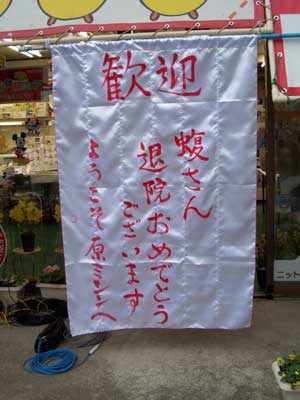 歓迎
蝮さん
退院おめでとう
ございます
ようこそ原ミシンへ
ニット